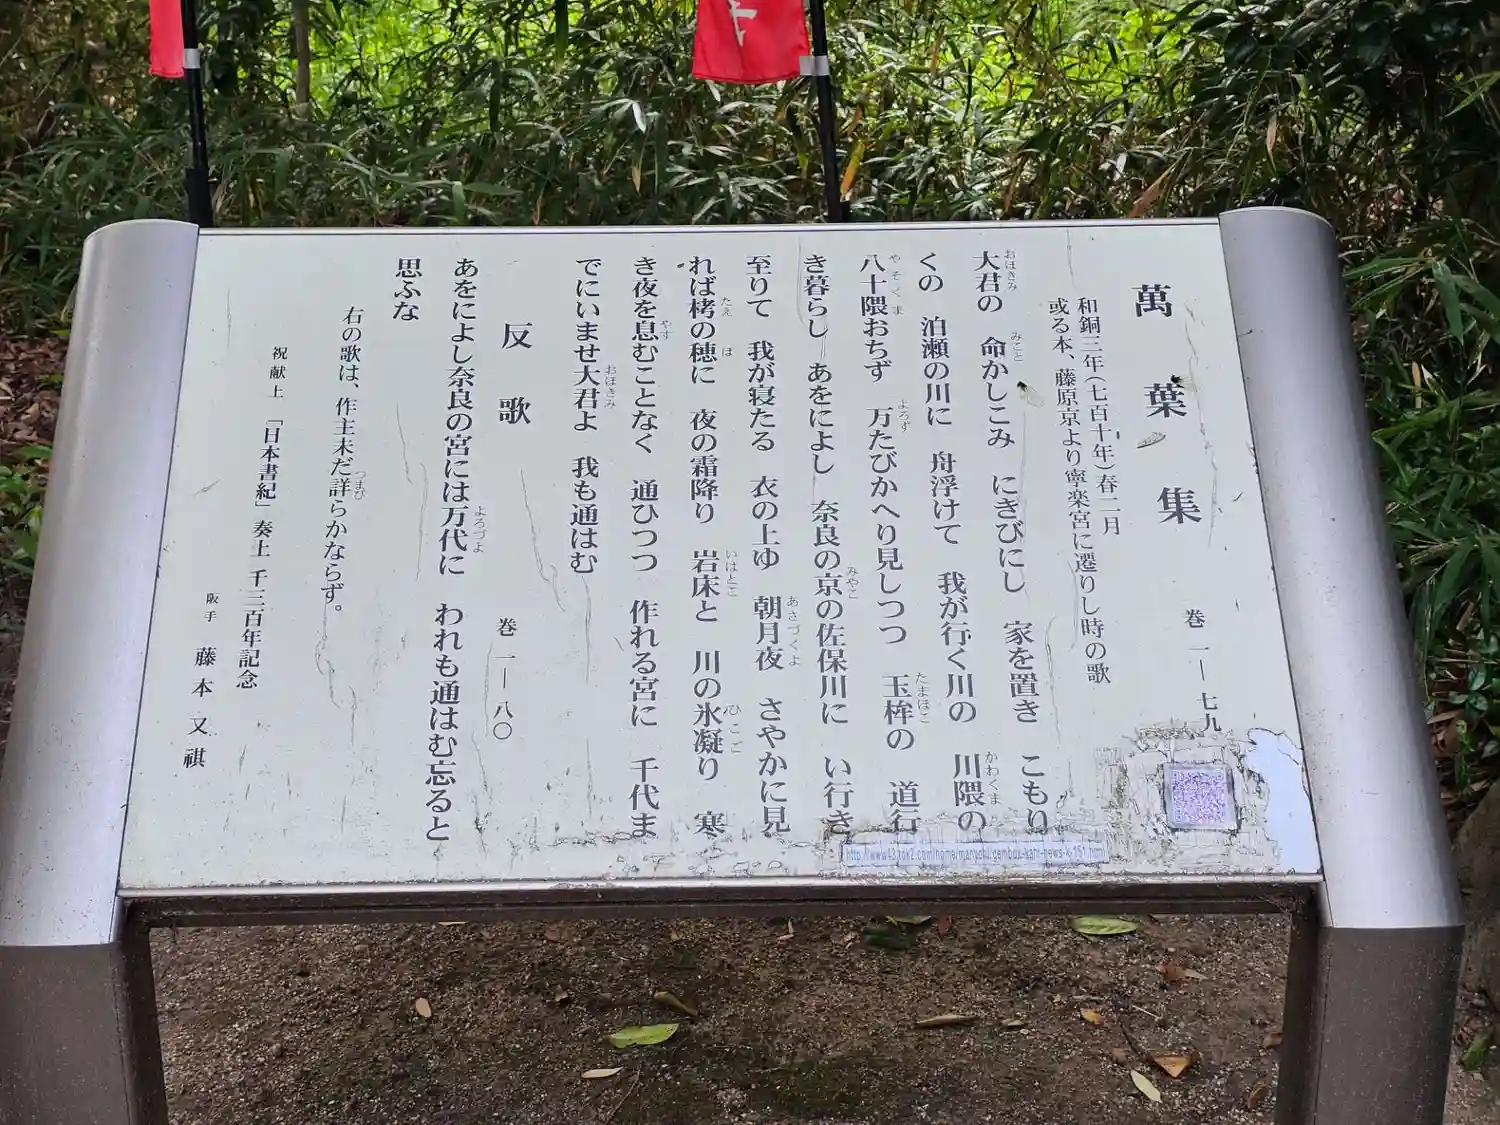 萬葉集　巻一―七九
和銅三年(七百十年)春二月
或る本、藤原京より寧楽宮に遷りし時の歌
大君の　命かしこみ　にきびにし　家を置き　こもり
くの　泊瀬の川に　舟浮けて　我が行く川の　川隈の
八十隈おちず　万たびかへり見しつつ　玉桙の　道行
き暮らし　あをによし　奈良の京の佐保川に　い行き
至りて　我が寝たる　衣の上ゆ　朝月夜　さやかに見
れば栲の穂に　夜の霜降り　岩床と　川の氷凝り　寒
き夜を息むことなく　通ひつつ　作れる宮に　千代ま
でにいませ大君よ　我も通はむ
反歌　巻一―八〇
あをによし奈良の宮には万代に　われも通はむ忘ると
思ふな
右の歌は、作主未だ詳らかならず。
祝献上「日本書紀」奏上　千三百年記念
阪手　藤本又祺